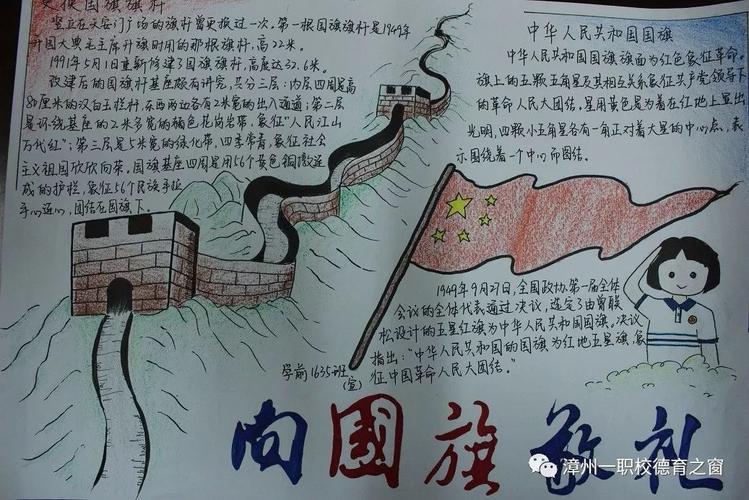 更换国旗旗杆
竖立在天安门广场的旗杆曾更换过一次。第一根国旗旗杆是1949年
开国大典毛主席升旗时用的那根旗杆,高22米。
1991年5月1日重新修建了国旗旗杆,高度达32.6米。
改建后的国旗杆基座颇有讲究,共分三层:内层四周是高
80厘米的汉白玉栏杆,东西两边各有2米宽的出入通道;第二层
是环绕基座的2米多宽的褐色花岗岩带,象征"人民江山
万代红";第三层是5米宽的绿化带,四季常青,象征社会
主义祖国欣欣向荣。国旗基座四周是用56个黄色铜墩造
成的护栏,象征56个民族手拉
手心连心,团结在国旗下。
中华人民共和国国旗
中华人民共和国国旗旗面为红色象征革命。
旗上的五颗五角星及其相互关系象征共产党领导下
的革命人民大团结。星用黄色是为着在红地上显出
光明,四颗小五角星各有一角正对着大星的中心点,表
示围绕着一个中心而团结。
1949年9月27日,全国政协第一届全体
会议的全体代表通过决议,选定了由曾联
松设计的五星红旗为中华人民共和国国旗。决议
指出:"中华人民共和国的国旗为红地五星旗,象
征中国革命人民大团结。"
学前1635班
(宣)
向國旗敬礼
漳州一职校德育之窗